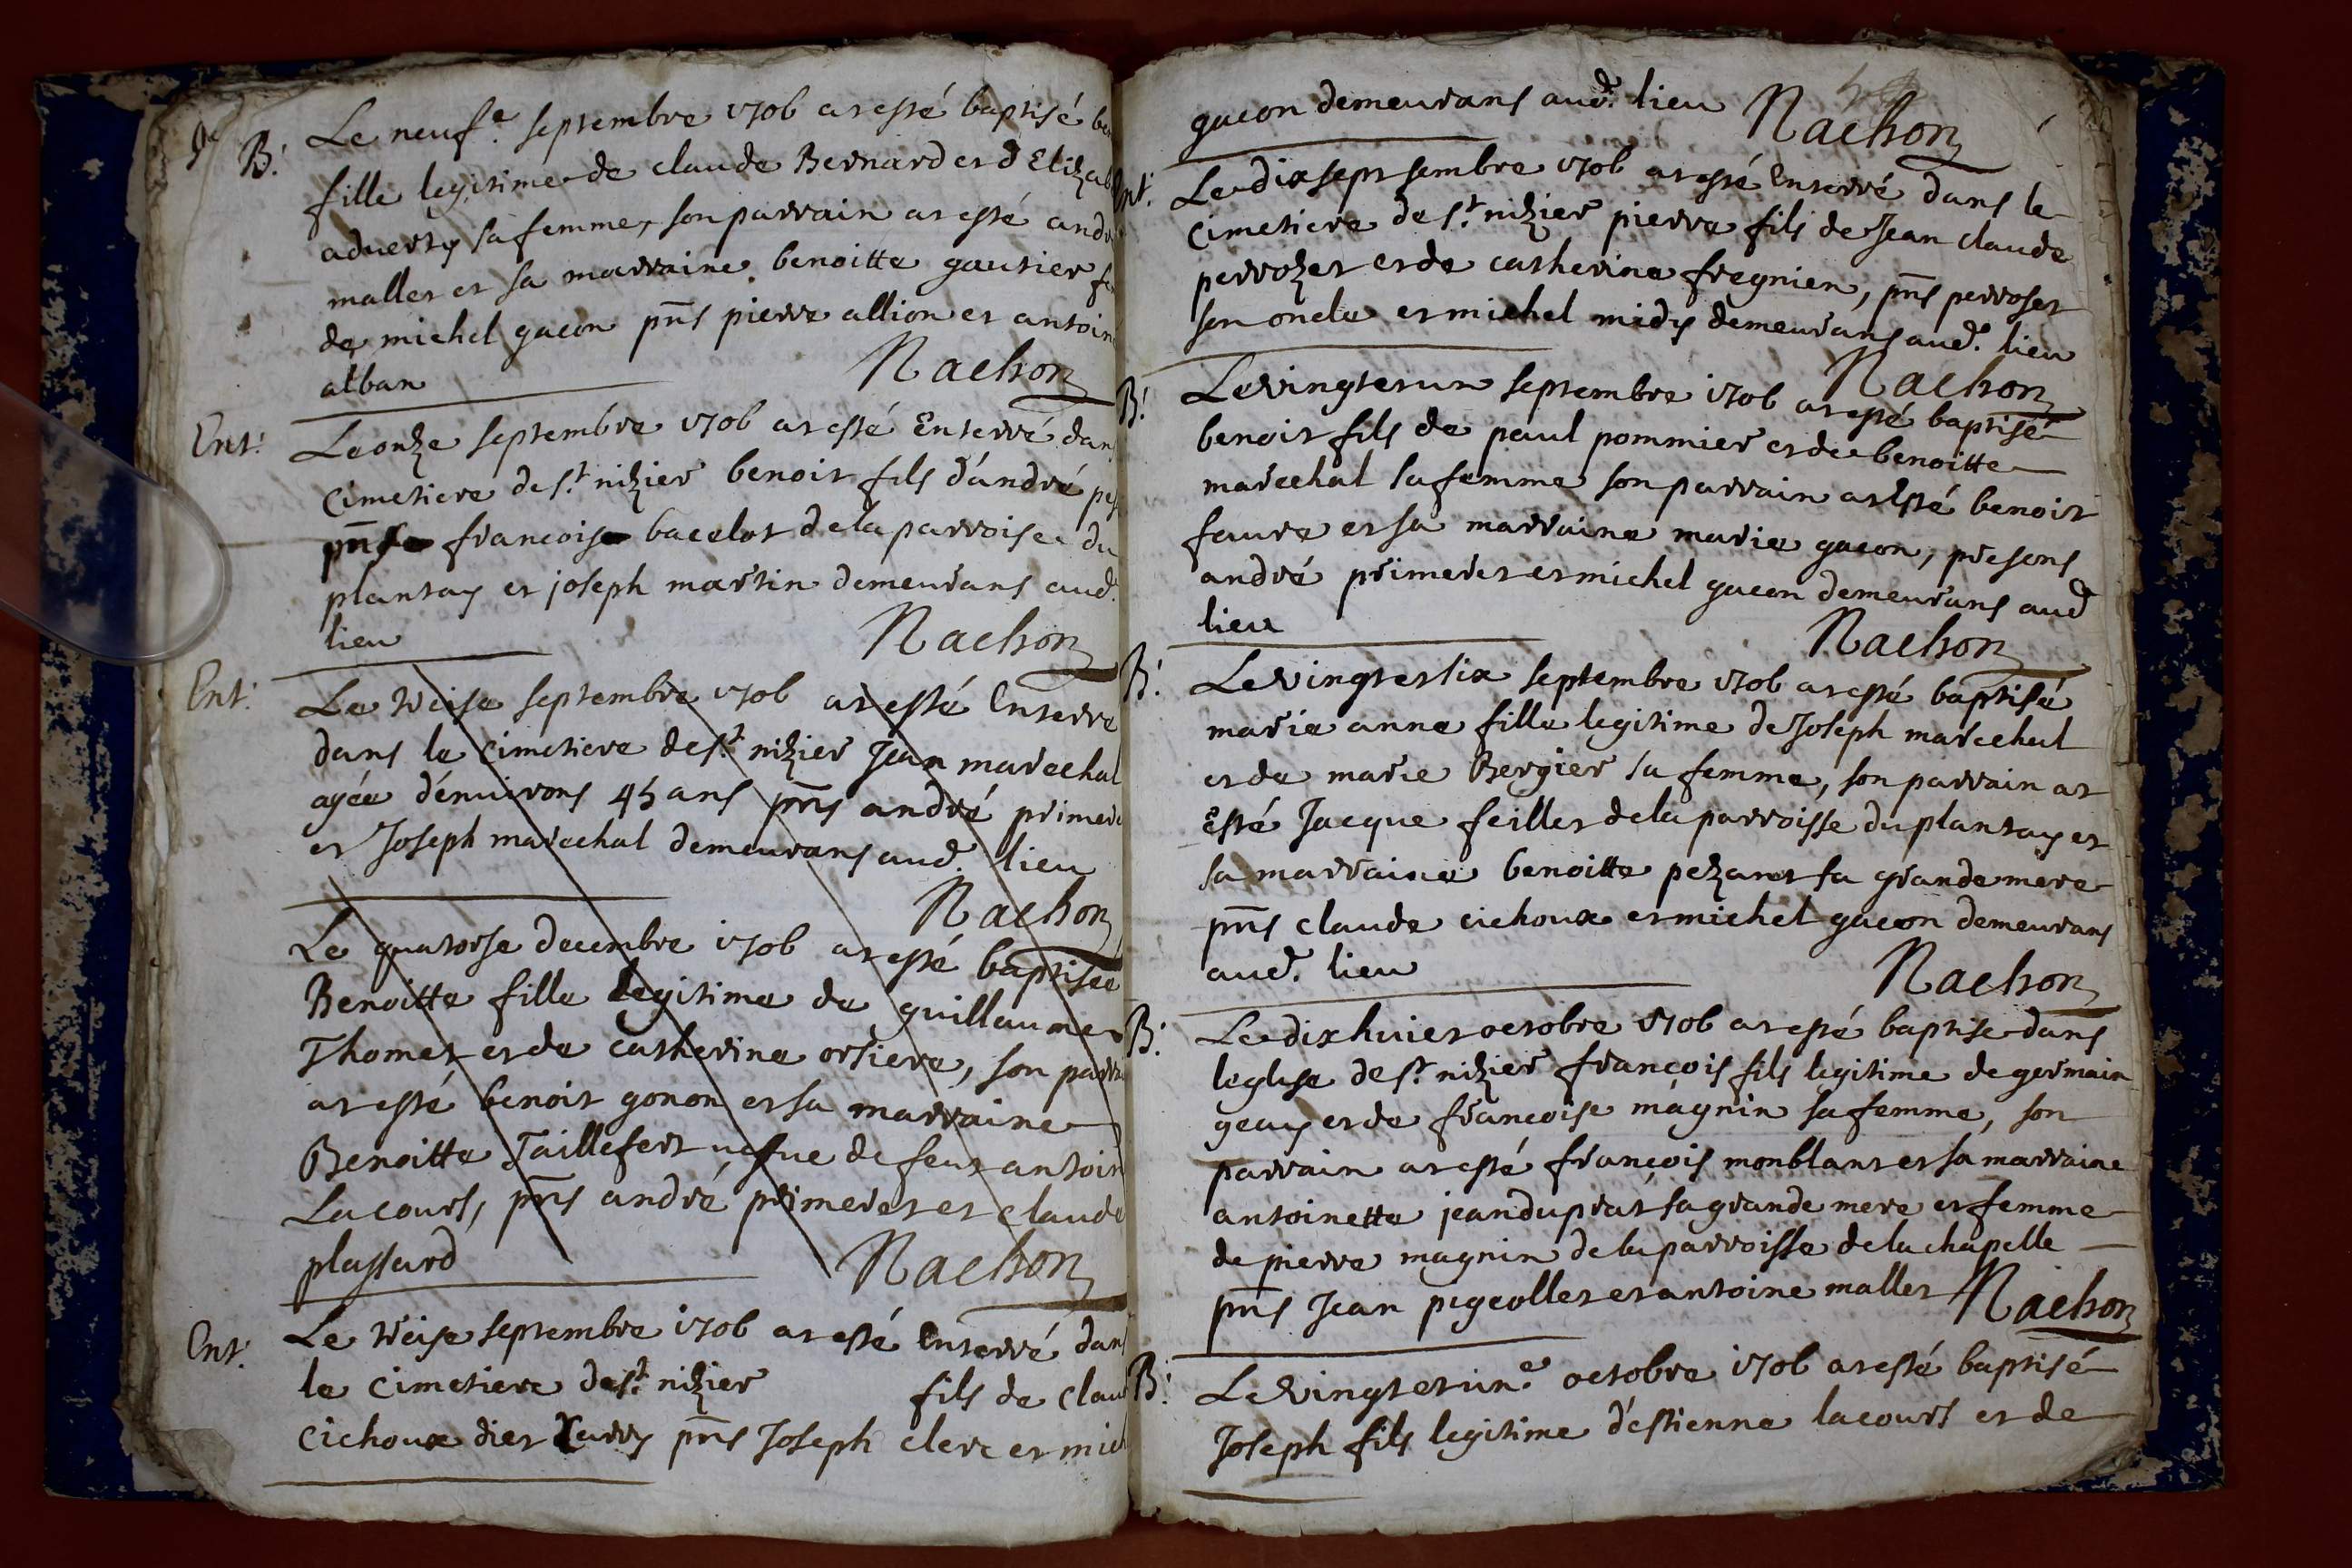 B.
Le neuf.e septembre 1706 at esté baptisé
fille legitime de claude Bernard et d Elizab
adverty sa femme, son parrain at esté andr
mallet et sa marraine benoitte gautier
de michel gacon pnts pierre allion et antoin
alban Nachon
Ent.
Le onze septembre 1706 at esté Enterré dan
cimetiere de st. nizier benoit fils d'andré
pnts francoise bacelot de la parroise du
plantay et joseph martin demeurans aud.
lieu Nachon
Ent.
Le treise septembre 1706 at esté Enterre
dans le cimetiere de st. nizier Jean marechal
agée d'environs 45 ans pnts andré primer
et Joseph marechal demeurans aud. lieu
Nachon
Le quatorse decembre 1706 at esté baptisée
Benoitte fille legitime de guillaume
Thomet et de catherine ortiere, son parra
at esté benoit gonon et sa marraine
Benoitte Taillefert vefve de feut antoin
Lacourt, pnts andré primeret et claude
plassard Nachon
Ent.
Le treise septembre 1706 at esté Enterré dans
le cimetiere de st. nizier fils de clau
cichoux diet pnts Joseph clerc et mich
gacon demeurans aud. lieu Nachon
Ent.
Le dix sept sembre 1706 at esté Enterré dans le
cimetiere de st. nizier pierre fils de Jean claude
perrozet et de catherine fregnien, pnts perroset
son oncle et michel midy demeurans aud. lieu
Nachon
B.
Le vingt et un septembre 1706 at esté baptisé
benoit fils de paul pommier et de benoitte
marechal sa femme son parrain at esté benoit
faure et sa marraine marie gacon, presens
andré primeret et michel gacon demeurans aud
lieu Nachon
B.
Le vingt et six septembre 1706 at esté baptisé
marie anne fille legitime de Joseph marechal
et de marie Bergier sa femme, son parrain at
Esté Jacque feillet de la parroisse du plantay et
sa marraine benoitte pezanet sa grande mere
pnts claude cichoux et michel gacon demeurans
aud. lieu Nachon
B.
Le dix huiet octobre 1706 at esté baptise dans
leglise de st. nizier françois fils legitime de germain
geay et de francoise magnin sa femme, son
parrain at esté françois monblant et sa marraine
antoinette jeanduprat sa grande mere et femme
de pierre magnin de la parroisse de la chapelle
pnts Jean pigeollet et antoine mallet Nachon
B.
Le vingt et un.e octobre 1706 at esté baptisé
Joseph fils legitime d'estienne lacourt et de